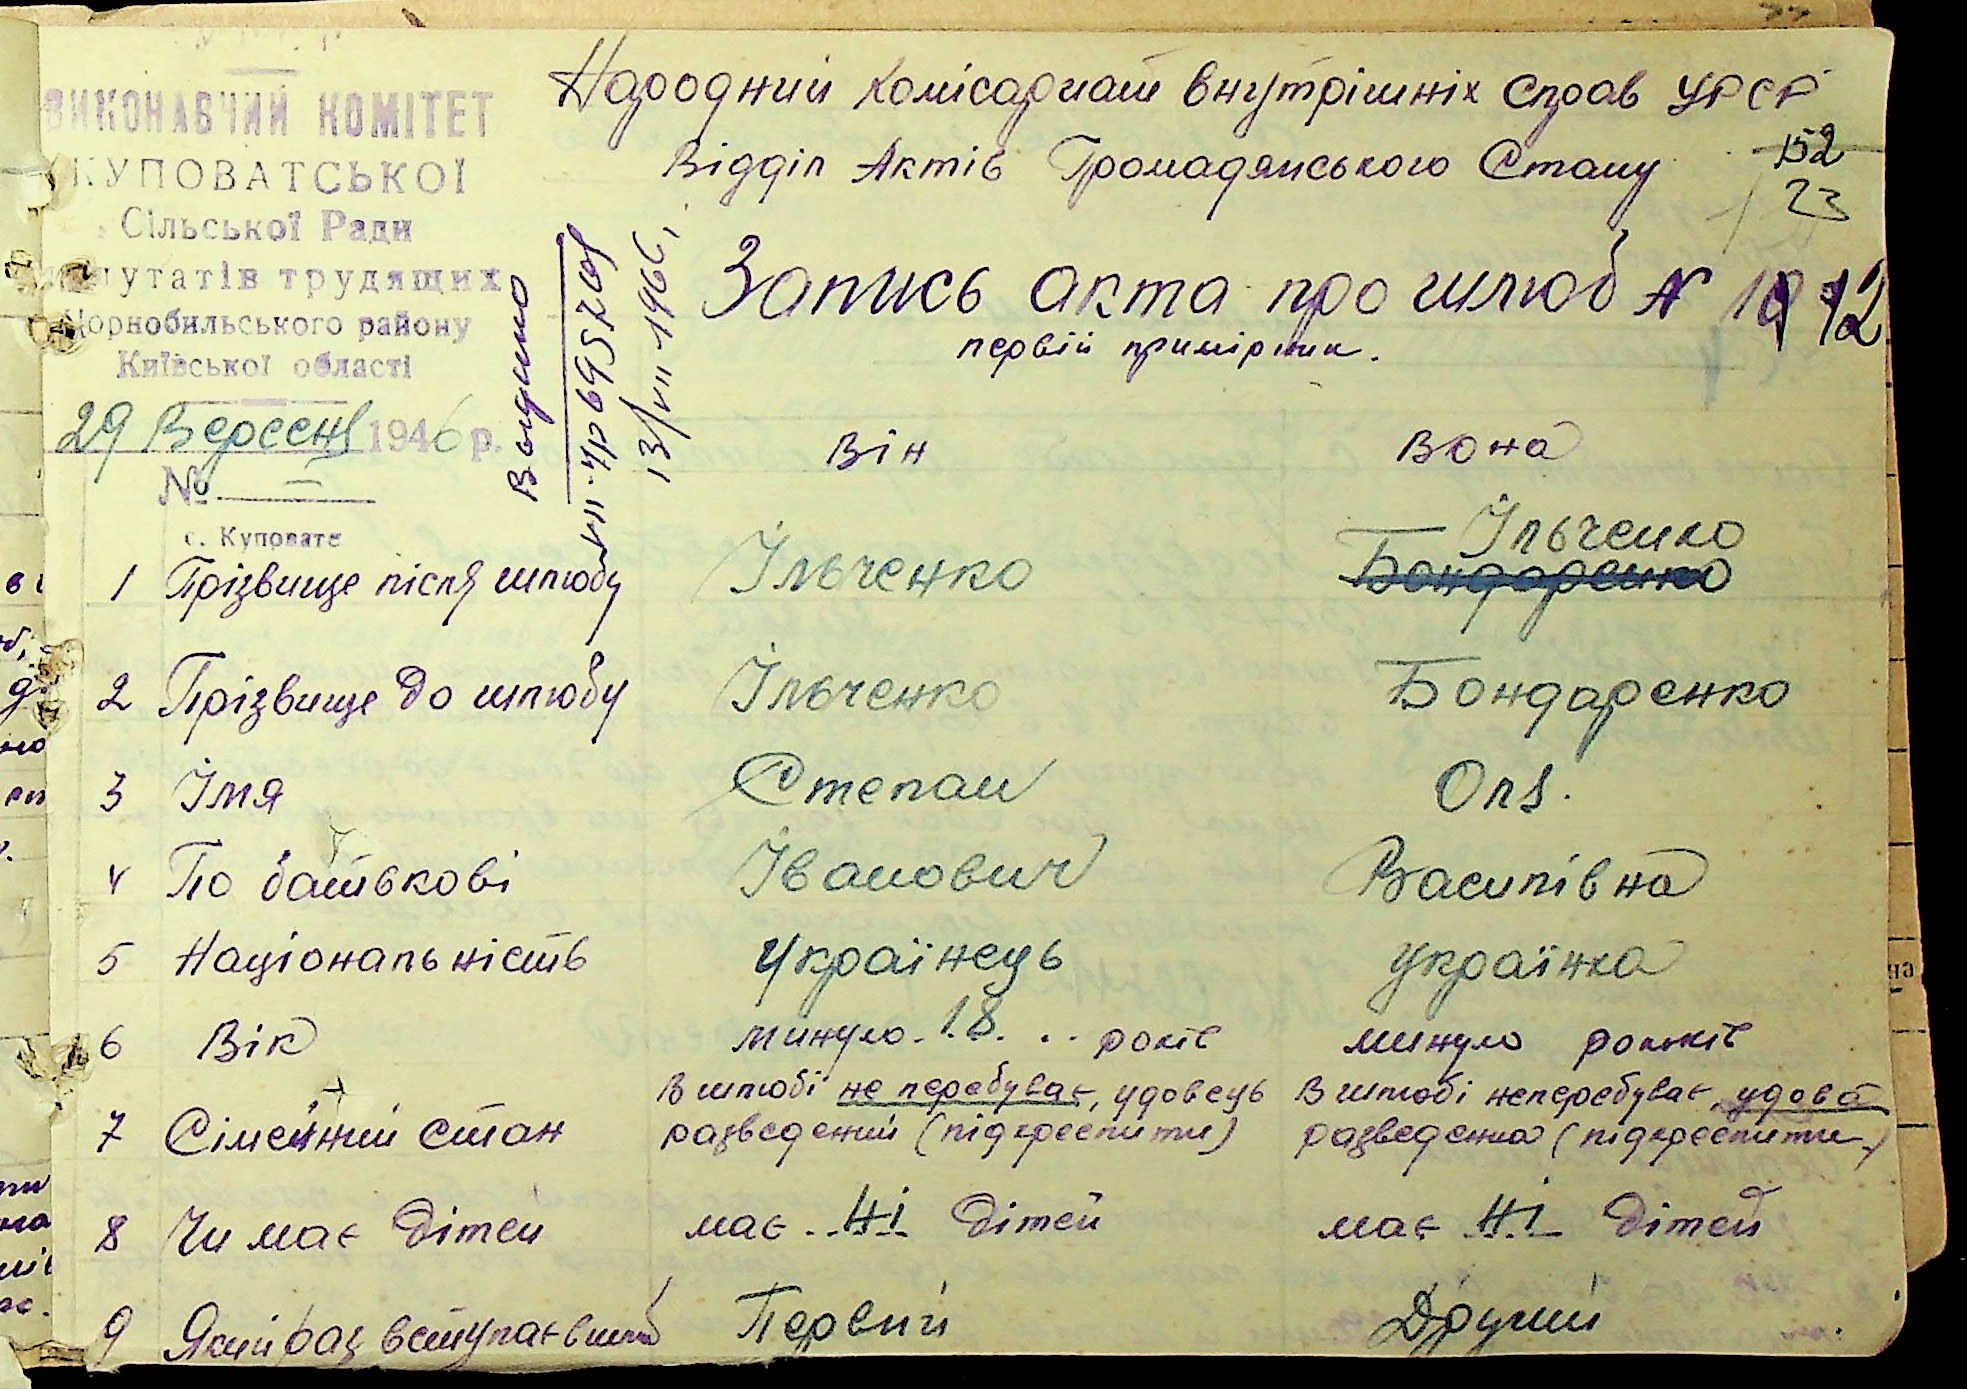 ВИКОНАВЧИЙ КОМІТЕТ
КУПОВАТСЬКОЇ
Сільської Ради
депутатів трудящих
Чорнобильського району
Київської області
29 Вересня 1946 р.
№
с. Куповате
Народний комісариат внутрішніх справ УРСР
Відділ Актів Громадянського Стану
152
23
Запись акта про шлюб N 12
первій примірник.
Выдано
VII-УР 695708
13/VII-1966
Він Вона
1 Прізвище після шлюбу Ільченко Ільченко
Бондаренко
2 Прізвище до шлюбу Ільченко Бондаренко
3 Імя Степан Оля.
4 По батькові Іванович Василівна
5 Національність Українець Українка
6 Вік минуло 18 років минуло років
7 Сімейний стан В шлюбі не перебуває, удовець В шлюбі неперебуває удова
разведений (підкреслити) разведенна (підкреслити)
8 Чи має дітей має ні дітей має ні дітей
9 Який раз вступає в шлюб Первий Другий